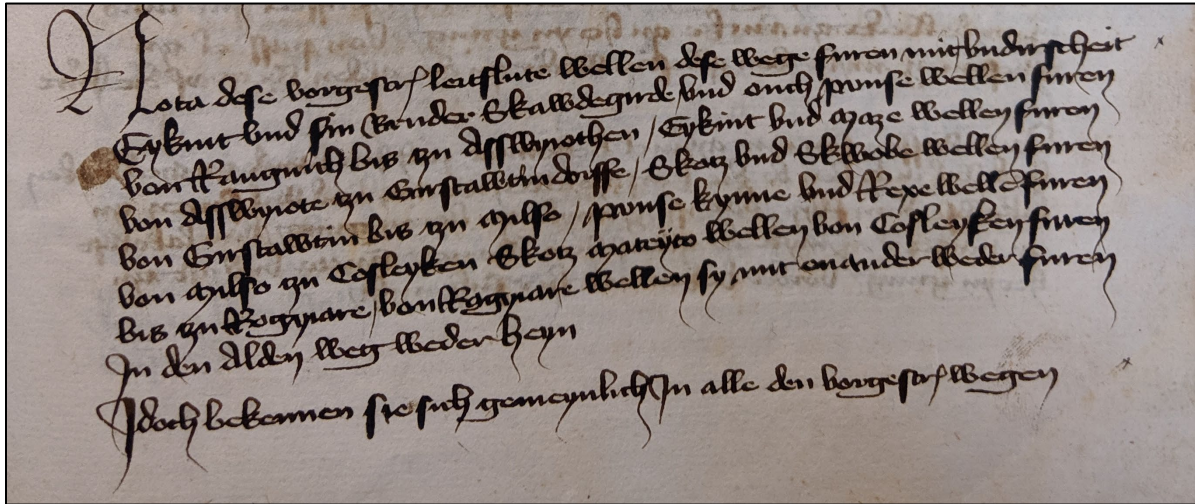 Nota dese vorgescr leitslute wellen dese wege furen mit undirscheit
Eykint und sin Bruder Skawdegirde und ouch prouse wellen furen
von Rangnith bis zu Asswynothen / Eykint und Maze wellen furen
von Asswynote zu Girstawtindorffe / Skotz und Skwobe wellen furen
von Girstawtin bis zu Milso / prouse kynne und Rexe wellen furen
von Milso zu Cosleyken Skotz Mateyto wellen von Cosleyken furen
bis zu Rogymare / von Rogymare wellen sy mit enander weder furen
In den Alden weg weder heyn
Idoch bekennen sie sich gemeynlich In alle den vorgescr wegen